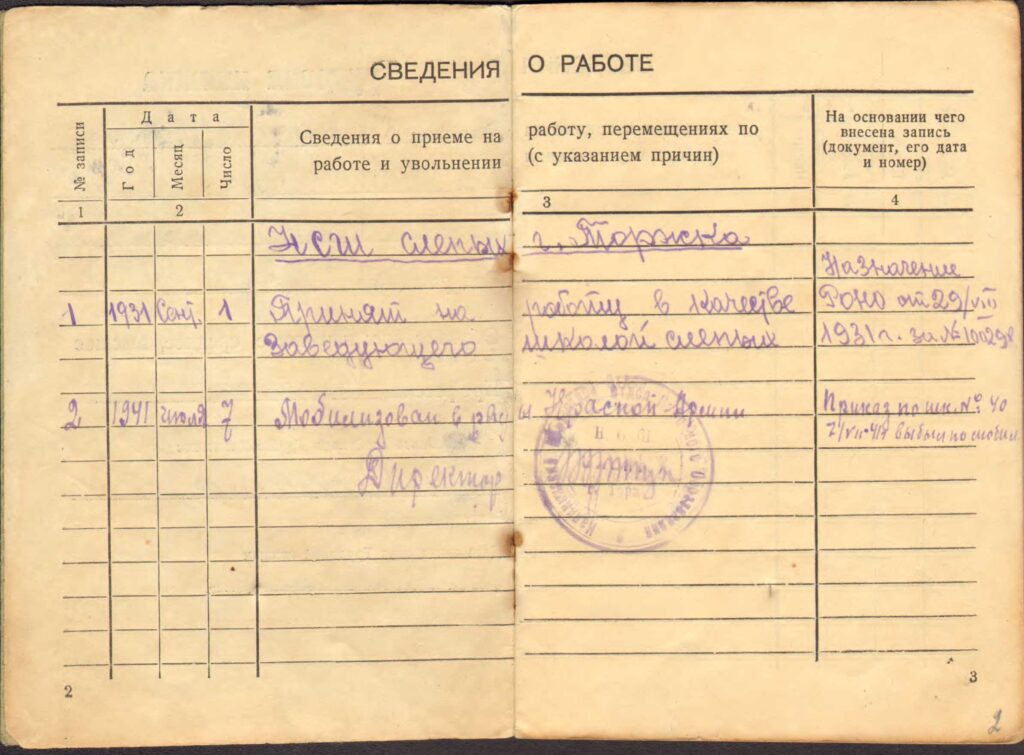 СВЕДЕНИЯ О РАБОТЕ
№ записи
Дата
Год
Месяц
Число
Сведения о приеме на работу, перемещениях по
работе и увольнении (с указанием причин)
На основании чего
внесена запись
(документ, его дата
и номер)
1
2
3
4
слепых г. Торжка
1 1931 Сент. 1 Принят на работу в качестве
Заведующего школой слепых
Назначение
РОНО от 29/VIII
1931 г. за № 10029
2 1941 июля 7 Мобилизован в ряды Красной Армии
Директор
Приказ по шк. № 40
7/VII-41 г выбыл по мобил.
2
3
2